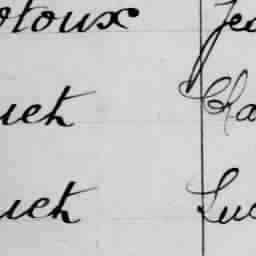 otoux Jea
uet Cla
uet Luc